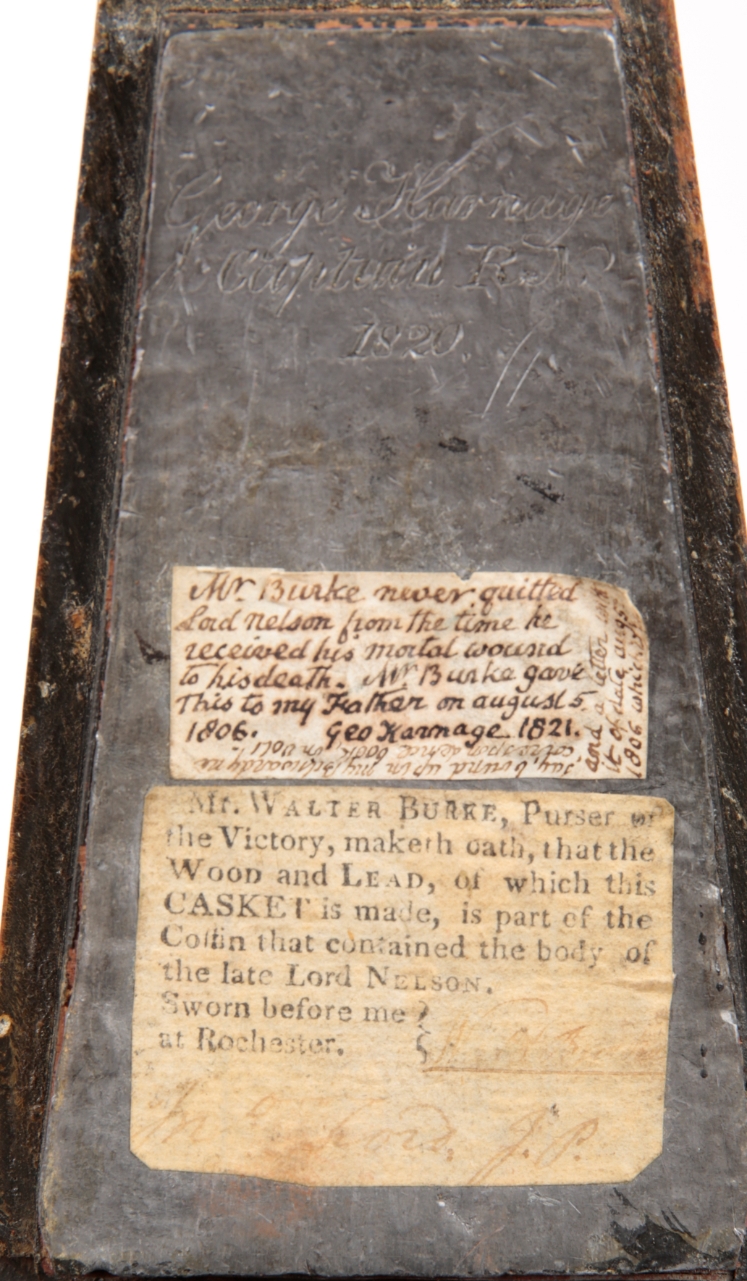 George Harnage
Captain R.N.
1820.
Mr Burke never quitted
Lord Nelson from the time he
received his mortal wound
to his death. Mr Burke gave
This to my Father on august 5,
1806. Geo Harnage 1821.
and a letter
it of date augst
1806 which is
bound up in my
book, on vol 1.
Mr. WALTER BURKE, Purser of
the Victory, maketh oath, that the
WOOD and LEAD, of which this
CASKET is made, is part of the
Coffin that contained the body of
the late Lord NELSON.
Sworn before me
at Rochester.
J.P.